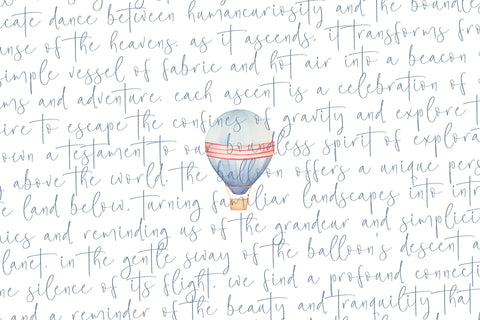 cate dance between human curiosity and the boundles
nse of the heavens. as it ascends, it transforms fro
simple vessel of fabric and hot air into a beacon
ms and adventure. each ascent is a celebration of
ire to escape the confines of gravity and explore t
own a testament to our boundless spirit of explora
above the world. the balloon offers a unique pers
e land below, turning familiar landscapes into intr
ics and reminding us of the grandeur and simplici
lanet. in the gentle sway of the balloon's descent a
he silence of its flight, we find a profound connecti
and a reminder of the beauty and tranquility that